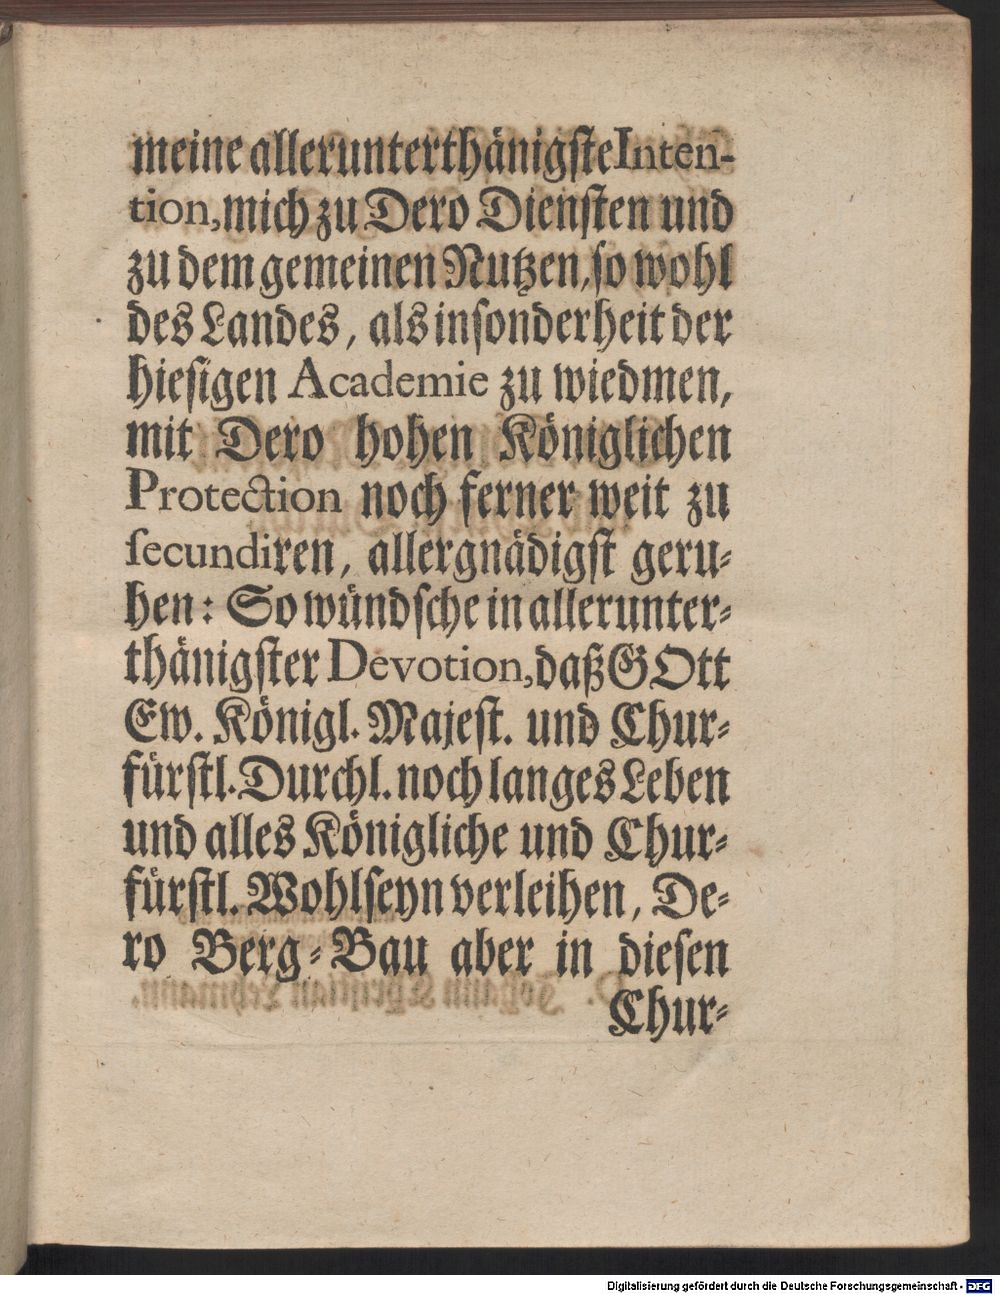 meine allerunterthänigste Inten-
tion, mich zu Dero Diensten und
zu dem gemeinen Nutzen, so wohl
des Landes, als insonderheit der
hiesigen Academie zu wiedmen,
mit Dero hohen Königlichen
Protection noch ferner weit zu
secundiren, allergnädigst geru-
hen: So wündsche in allerunter-
thänigster Devotion, daß GOtt
Ew. Königl. Majest. und Chur-
fürstl. Durchl. noch langes Leben
und alles Königliche und Chur-
fürstl. Wohlseyn verleihen, De-
ro Berg-Bau aber in diesen
Chur-
Digitalisierung gefördert durch die Deutsche Forschungsgemeinschaft - DFG